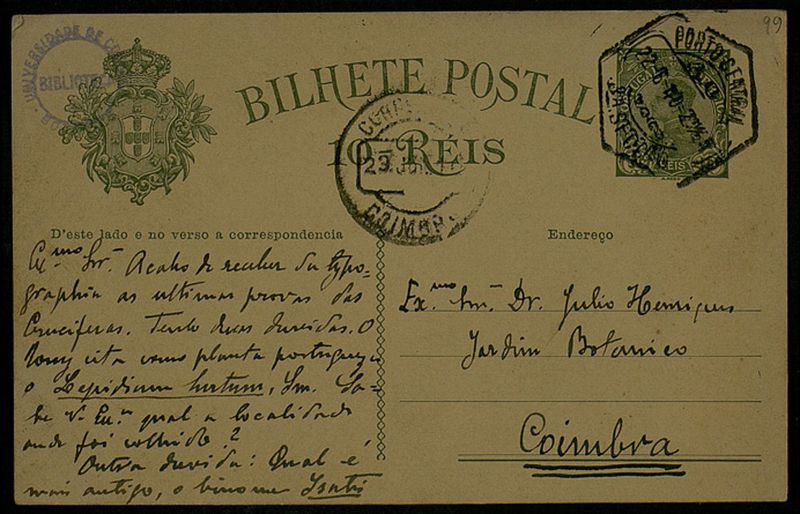 99
UNIVERSIDADE DE CO
BIBLIOTECA
BILHETE POSTAL
10 RÉIS
PORTO CENTRAL
22-6
CORRE
23 JUN
COIMBRA
D'este lado e no verso a correspondencia
Endereço
Ex.mo Snr. Acabo de receber da typo-
graphia as ultimas provas das
Cruciferas. Tenho duas duvidas. O
Rouy cita como planta portugueza
o Lepidium hirtum, Sm. Sa-
be V. Ex.a qual a localidade
onde foi colhido?
Outra duvida: Qual é
mais antigo, o binome Isatis
Ex.mo Snr. Dr. Julio Henriques
Jardim Botanico
Coimbra